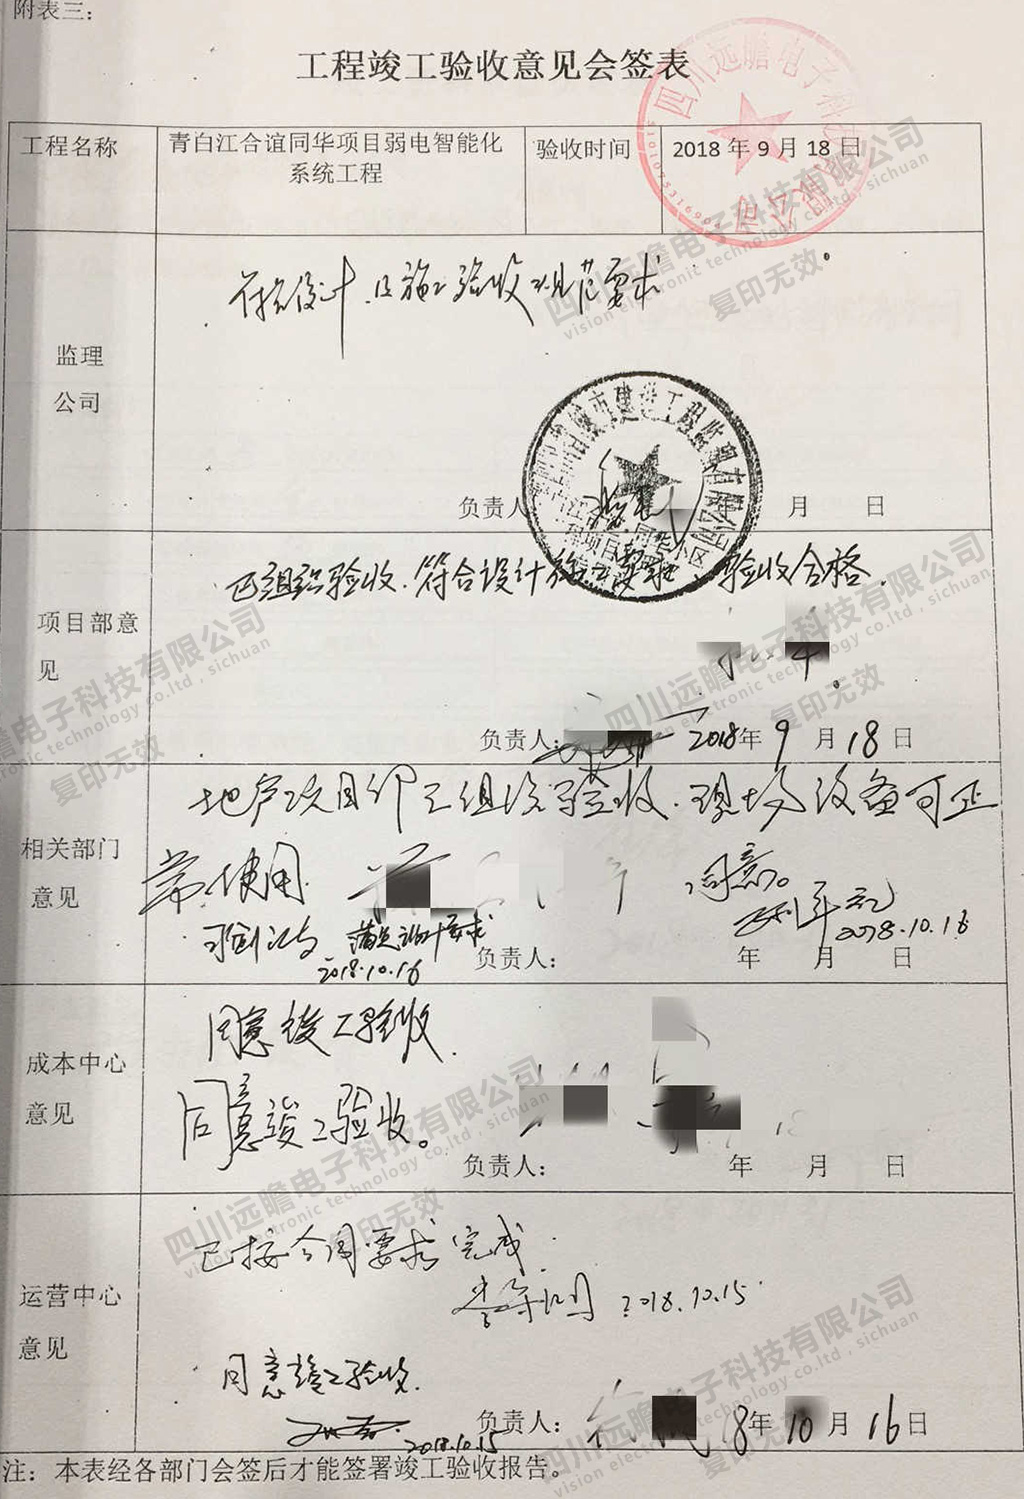 附表三:
工程竣工验收意见会签表
工程名称
青白江合谊同华项目弱电智能化
系统工程
验收时间
2018 年 9 月 18 日
四川远瞻电子科技有限公司
监理
公司
符合设计及施工验收规范要求
负责人
月 日
项目部意
见
已组织验收.符合设计
验收合格.
负责人:
2018年 9 月 18 日
相关部门
意见
地产项目部已组织验收.现场设备可正
常使用.
同意。
2018.10.16
满足设计要求
2018.10.16
负责人:
年 月 日
成本中心
意见
同意竣工验收.
同意竣工验收。
负责人:
年 月 日
运营中心
意见
已按合同要求完成.
2018.10.15
同意竣工验收.
2018.10.15
负责人:
18年 10 月 16 日
注: 本表经各部门会签后才能签署竣工验收报告。
四川远瞻电子科技有限公司
vision electronic technology co.ltd , sichuan
复印无效